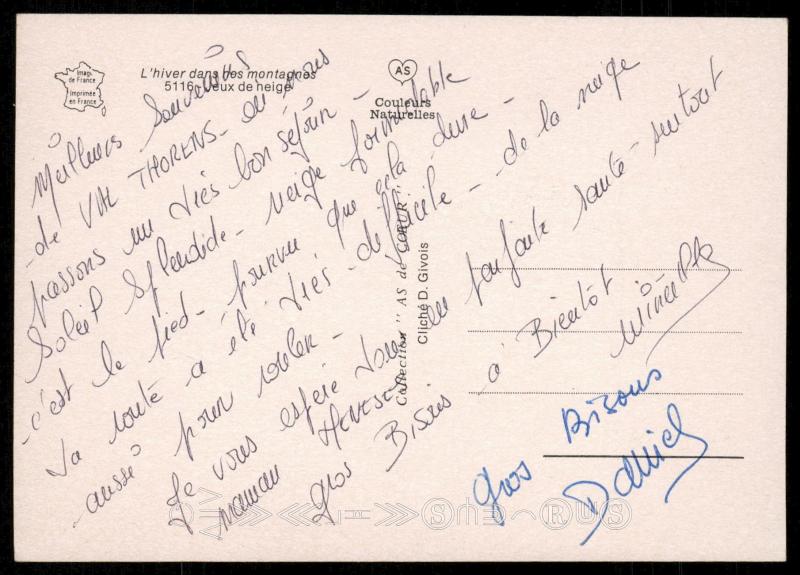 Image
de France
Imprimée
en France
L'hiver dans nos montagnes
5116 Jeux de neige
AS
Couleurs
Naturelles
Collection "AS de CŒUR"
Cliché D. Givois
Meilleurs Souvenirs
de VAL THORENS - où nous
passons un très bon séjour -
Soleil Splendide - neige formidable
c'est le pied - pourvu que cela dure -
La route a été très difficile - de la neige
aussi pour rouler -
Je vous espère tous en parfaite santé - surtout
maman
gros Bisous à Bientôt
gros Bisous
Daniel